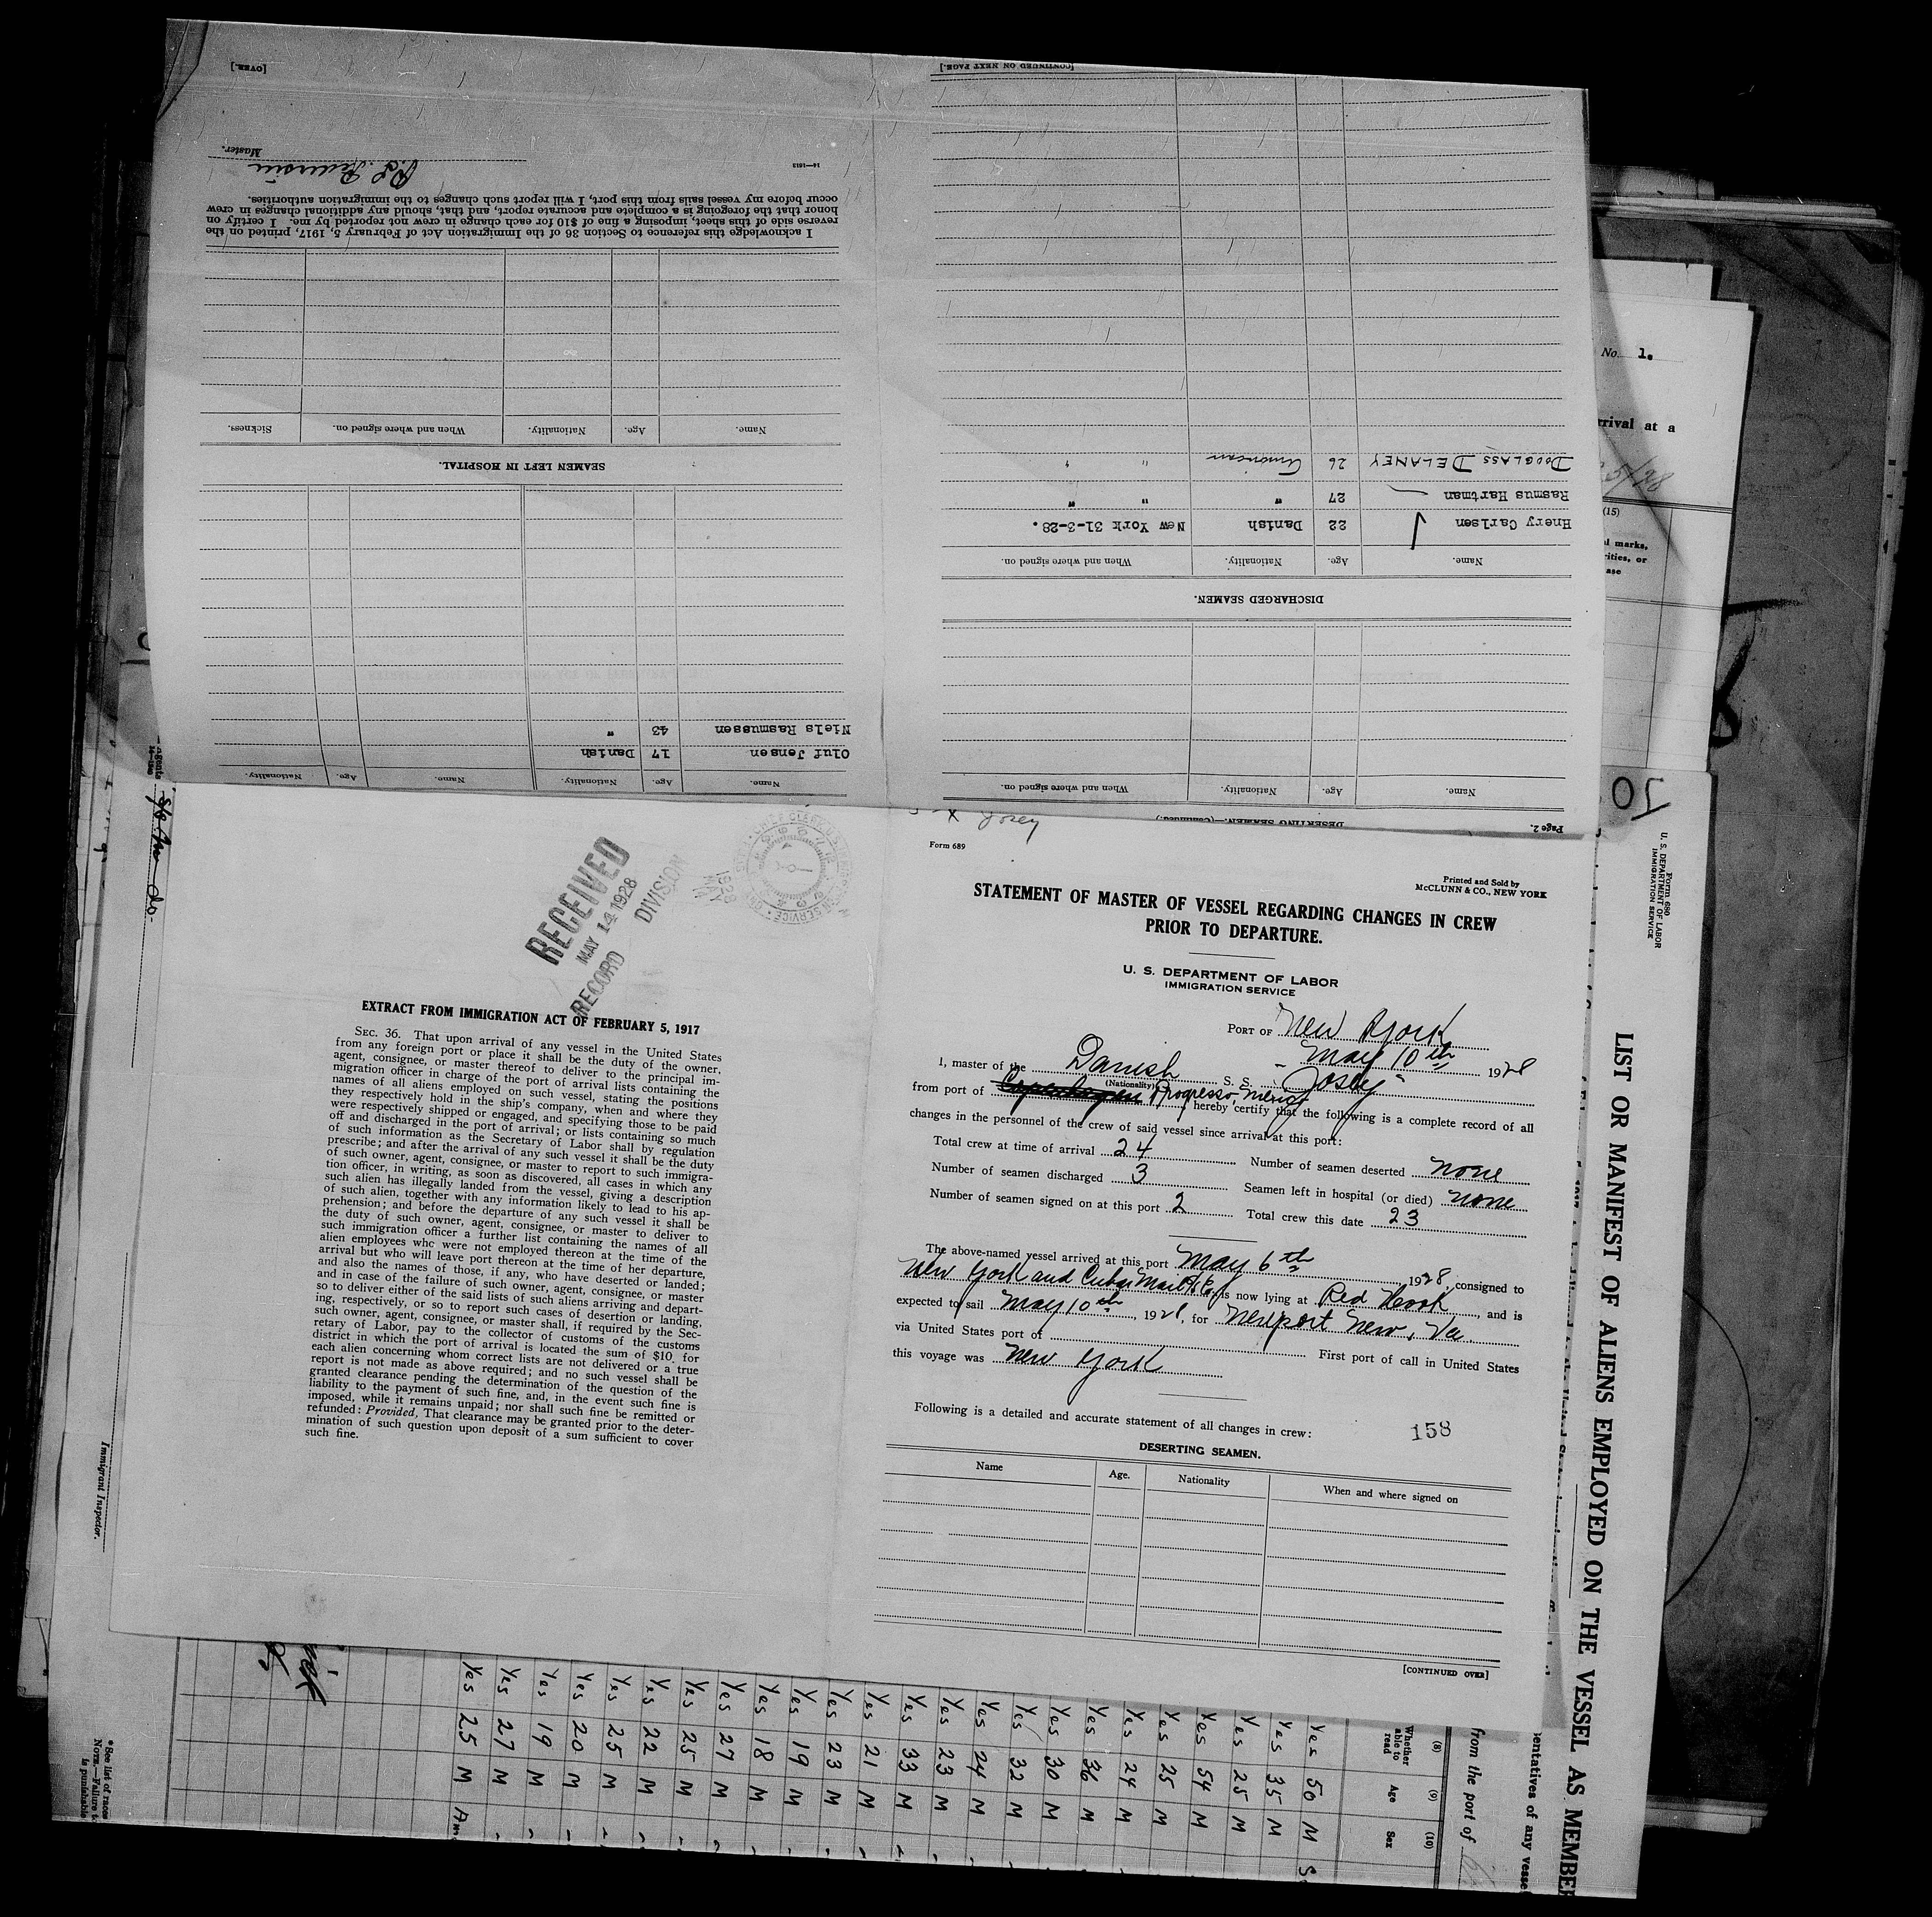 Form 689
Printed and Sold by
McCLUNN & CO., NEW YORK
STATEMENT OF MASTER OF VESSEL REGARDING CHANGES IN CREW
PRIOR TO DEPARTURE.
U. S. DEPARTMENT OF LABOR
IMMIGRATION SERVICE
PORT OF New York
May 10th 1928
I, master of the Danish S. S. "Josey"
(Nationality)
from port of Progresso, hereby certify that the following is a complete record of all
changes in the personnel of the crew of said vessel since arrival at this port:
Total crew at time of arrival 24 Number of seamen deserted none
Number of seamen discharged 3 Seamen left in hospital (or died) none
Number of seamen signed on at this port 2 Total crew this date 23
The above-named vessel arrived at this port May 6th, 1928, consigned to
New York and Cuba Mail is now lying at Red Hook, and is
expected to sail May 10th, 1928, for Newport New, Va.
via United States port of First port of call in United States
this voyage was New York
Following is a detailed and accurate statement of all changes in crew:
158
DESERTING SEAMEN.
Name Age. Nationality When and where signed on
[CONTINUED OVER]
RECEIVED
MAY 14 1928
RECORD DIVISION
EXTRACT FROM IMMIGRATION ACT OF FEBRUARY 5, 1917
SEC. 36. That upon arrival of any vessel in the United States
from any foreign port or place it shall be the duty of the owner,
agent, consignee, or master thereof to deliver to the principal im-
migration officer in charge of the port of arrival lists containing the
names of all aliens employed on such vessel, stating the positions
they respectively hold in the ship's company, when and where they
were respectively shipped or engaged, and specifying those to be paid
off and discharged in the port of arrival; or lists containing so much
of such information as the Secretary of Labor shall by regulation
prescribe; and after the arrival of any such vessel it shall be the duty
of such owner, agent, consignee, or master to report to such immigra-
tion officer, in writing, as soon as discovered, all cases in which any
such alien has illegally landed from the vessel, giving a description
of such alien, together with any information likely to lead to his ap-
prehension; and before the departure of any such vessel it shall be
the duty of such owner, agent, consignee, or master to deliver to
such immigration officer a further list containing the names of all
alien employees who were not employed thereon at the time of the
arrival but who will leave port thereon at the time of her departure,
and also the names of those, if any, who have deserted or landed;
and in case of the failure of such owner, agent, consignee, or master
so to deliver either of the said lists of such aliens arriving and depart-
ing, respectively, or so to report such cases of desertion or landing,
such owner, agent, consignee, or master shall, if required by the Sec-
retary of Labor, pay to the collector of customs of the customs
district in which the port of arrival is located the sum of $10 for
each alien concerning whom correct lists are not delivered or a true
report is not made as above required; and no such vessel shall be
granted clearance pending the determination of the question of the
liability to the payment of such fine, and, in the event such fine is
imposed, while it remains unpaid; nor shall such fine be remitted or
refunded: Provided, That clearance may be granted prior to the deter-
mination of such question upon deposit of a sum sufficient to cover
such fine.
Page 2.
DESERTING SEAMEN.—(Continued.)
Name. Age. Nationality. When and where signed on.
DISCHARGED SEAMEN.
Name. Age. Nationality. When and where signed on.
Hnery Carlsen 22 Danish New York 31-3-28.
Rasmus Hartman 27 " " "
DOUGLASS DELANEY 26 American " "
[CONTINUED ON NEXT PAGE.]
Name. Age. Nationality. Name. Age. Nationality.
Oluf Jensen 17 Danish
Niels Rasmussen 43 "
SEAMEN LEFT IN HOSPITAL.
Name. Age. Nationality. When and where signed on. Sickness.
I acknowledge this reference to Section 36 of the Immigration Act of February 5, 1917, printed on the
reverse side of this sheet, imposing a fine of $10 for each change in crew not reported by me. I certify on
honor that the foregoing is a complete and accurate report, and that, should any additional changes in crew
occur before my vessel sails from this port, I will report such changes to the immigration authorities.
14—1613
Master.
[OVER.]
No. 1.
rrival at a
(15)
l marks,
rities, or
ase
Form 680
U. S. DEPARTMENT OF LABOR
IMMIGRATION SERVICE
LIST OR MANIFEST OF ALIENS EMPLOYED ON THE VESSEL AS MEMBE
entatives of any vesse
from the port of
(8) (9) (10)
Whether able to read Age Sex
Yes 50 M
Yes 35 M
Yes 25 M
Yes 54 M
Yes 25 M
Yes 24 M
Yes 36 M
Yes 30 M
Yes 32 M
Yes 24 M
Yes 23 M
Yes 33 M
Yes 21 M
Yes 23 M
Yes 19 M
Yes 18 M
Yes 27 M
Yes 25 M
Yes 22 M
Yes 25 M
Yes 20 M
Yes 19 M
Yes 27 M
Yes 25 M
Immigrant Inspector.
* See list of races
NOTE.—Failure t
is punishable